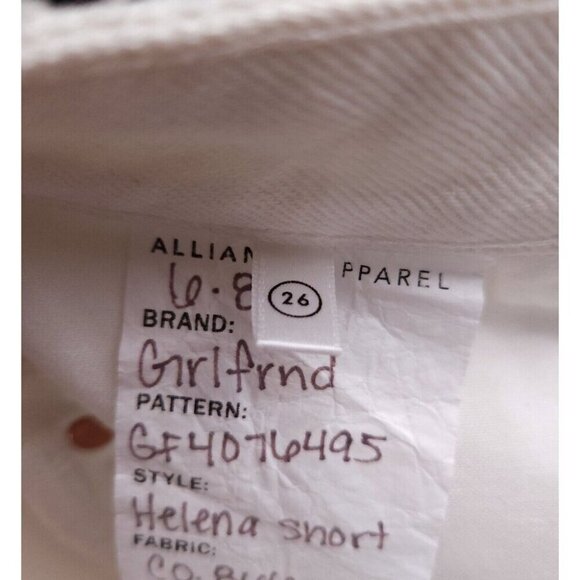 ALLIAN PPAREL
6.8
26
BRAND:
Grlfrnd
PATTERN:
GF4076495
STYLE:
Helena short
FABRIC: